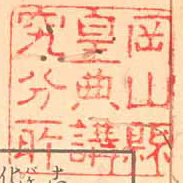 岡山縣
皇典講
究分所